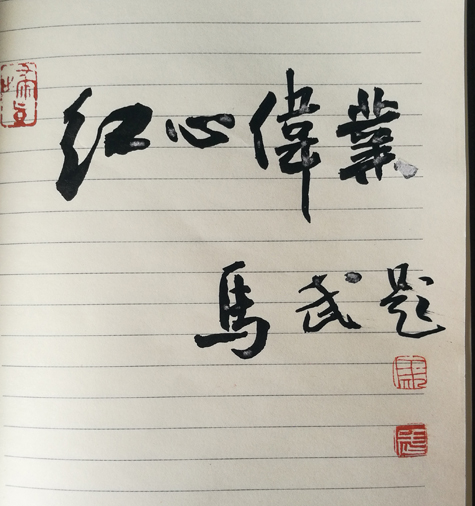 红心偉業
馬武题